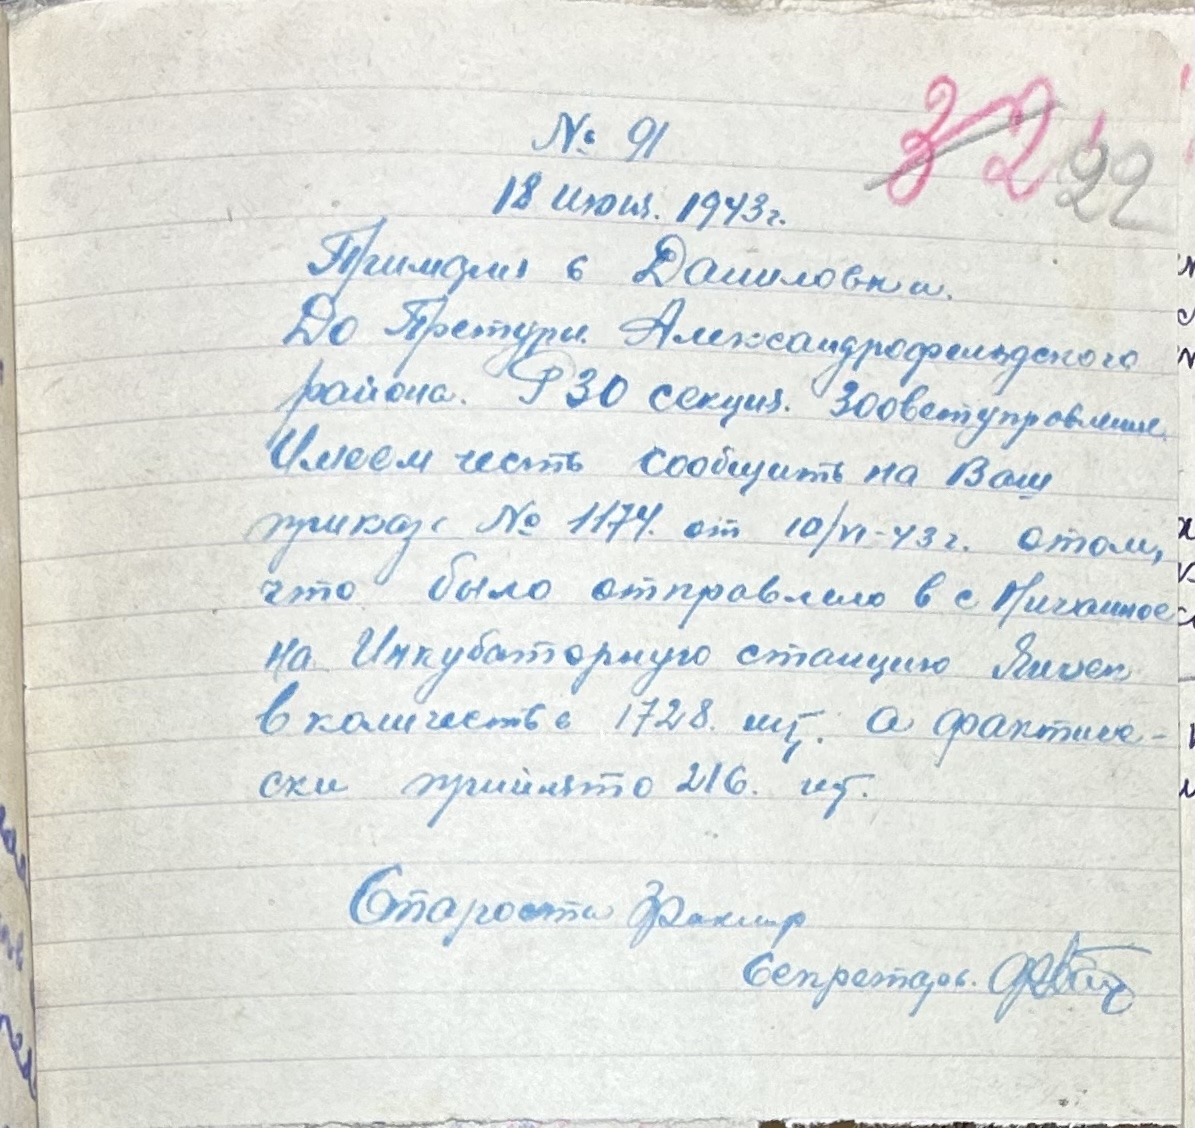 32 22
№ 91
18 июня. 1943 г.
Примария с Даниловка.
До Претури. Александрофельдского
района. РЗО секция. Зооветуправление
Имеем честь сообщить на Ваш
приказ № 1174. от 10/VI-43 г. отом,
что было отправлено в с
на Инкубаторную станцию Яичек
в количестве 1728. шт. а фактиче-
ски прийнято 216. шт.
Староста
Секретарь.